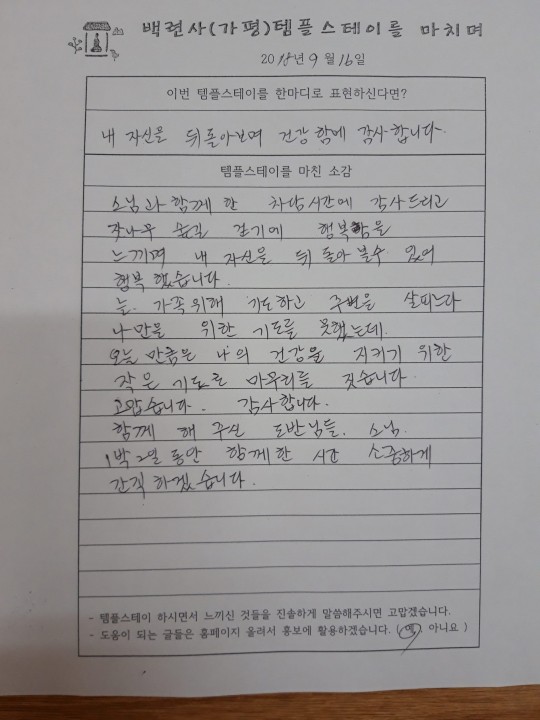 백련사(가평)템플스테이를 마치며
2018년 9월 16일
이번 템플스테이를 한마디로 표현하신다면?
내 자신을 뒤돌아보며 건강함에 감사합니다.
템플스테이를 마친 소감
스님과 함께 한 차담시간에 감사드리고
잣나무 숲길 걷기에 행복함을
느끼며 내 자신을 뒤 돌아 볼수 있어
행복했습니다.
늘. 가족위해 기도하고 주변을 살피느라
나만을 위한 기도를 못했는데.
오늘 만큼은 나의 건강을 지키기 위한
작은 기도로 마무리를 짓습니다.
고맙습니다. 감사합니다.
함께 해 주신 도반님들. 스님.
1박2일 동안 함께한 시간 소중하게
간직하겠습니다.
- 템플스테이 하시면서 느끼신 것들을 진솔하게 말씀해주시면 고맙겠습니다.
- 도움이 되는 글들은 홈페이지 올려서 홍보에 활용하겠습니다. ( 예, 아니요 )